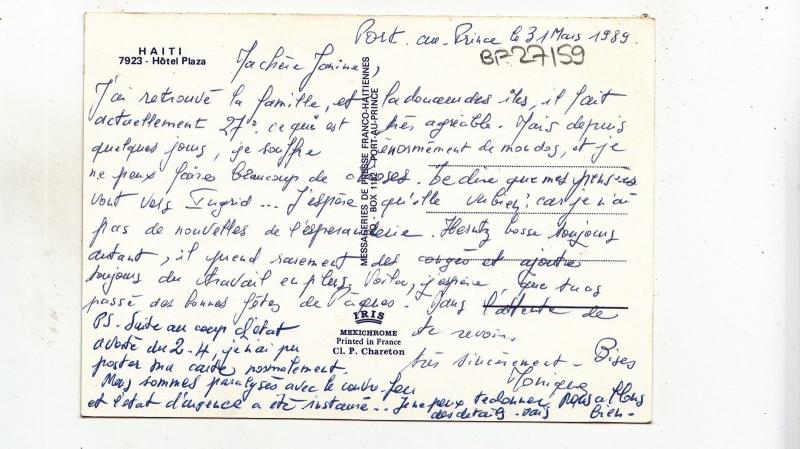 HAITI
7923 - Hôtel Plaza
Port-au-Prince le 31 Mars 1989.
BP27/59
Ma chère Janine,
J'ai retrouvé la famille, et la douceur des îles, il fait
actuellement 27° ce qui est très agréable. Mais depuis
quelques jours, je souffre énormément de mon dos, et je
ne peux faire beaucoup de choses. Te dire que mes pensées
vont vers Ingrid... J'espère qu'elle va bien! car je n'ai
pas de nouvelles de l'espérance. Herntz bosse toujours
autant, il prend rarement des congés et
toujours du travail en plus. Voilà, j'espère, que tu as
passé des bonnes fêtes de Pâques. Dans l'attente de
te revoir.
très sincèrement - Bises
Monique
PS. Suite au coup d'état
avorté du 2-4, je n'ai pu
poster ma carte normalement.
Nous sommes paralysés avec le couvre-feu
et l'état d'urgence a été instauré... Je ne peux te donner
des détails. mais nous allons
bien -
MESSAGERIES DE PRESSE FRANCO-HAITIENNES
PO - BOX 1182 - PORT-AU-PRINCE
IRIS
MEXICHROME
Printed in France
Cl. P. Chareton